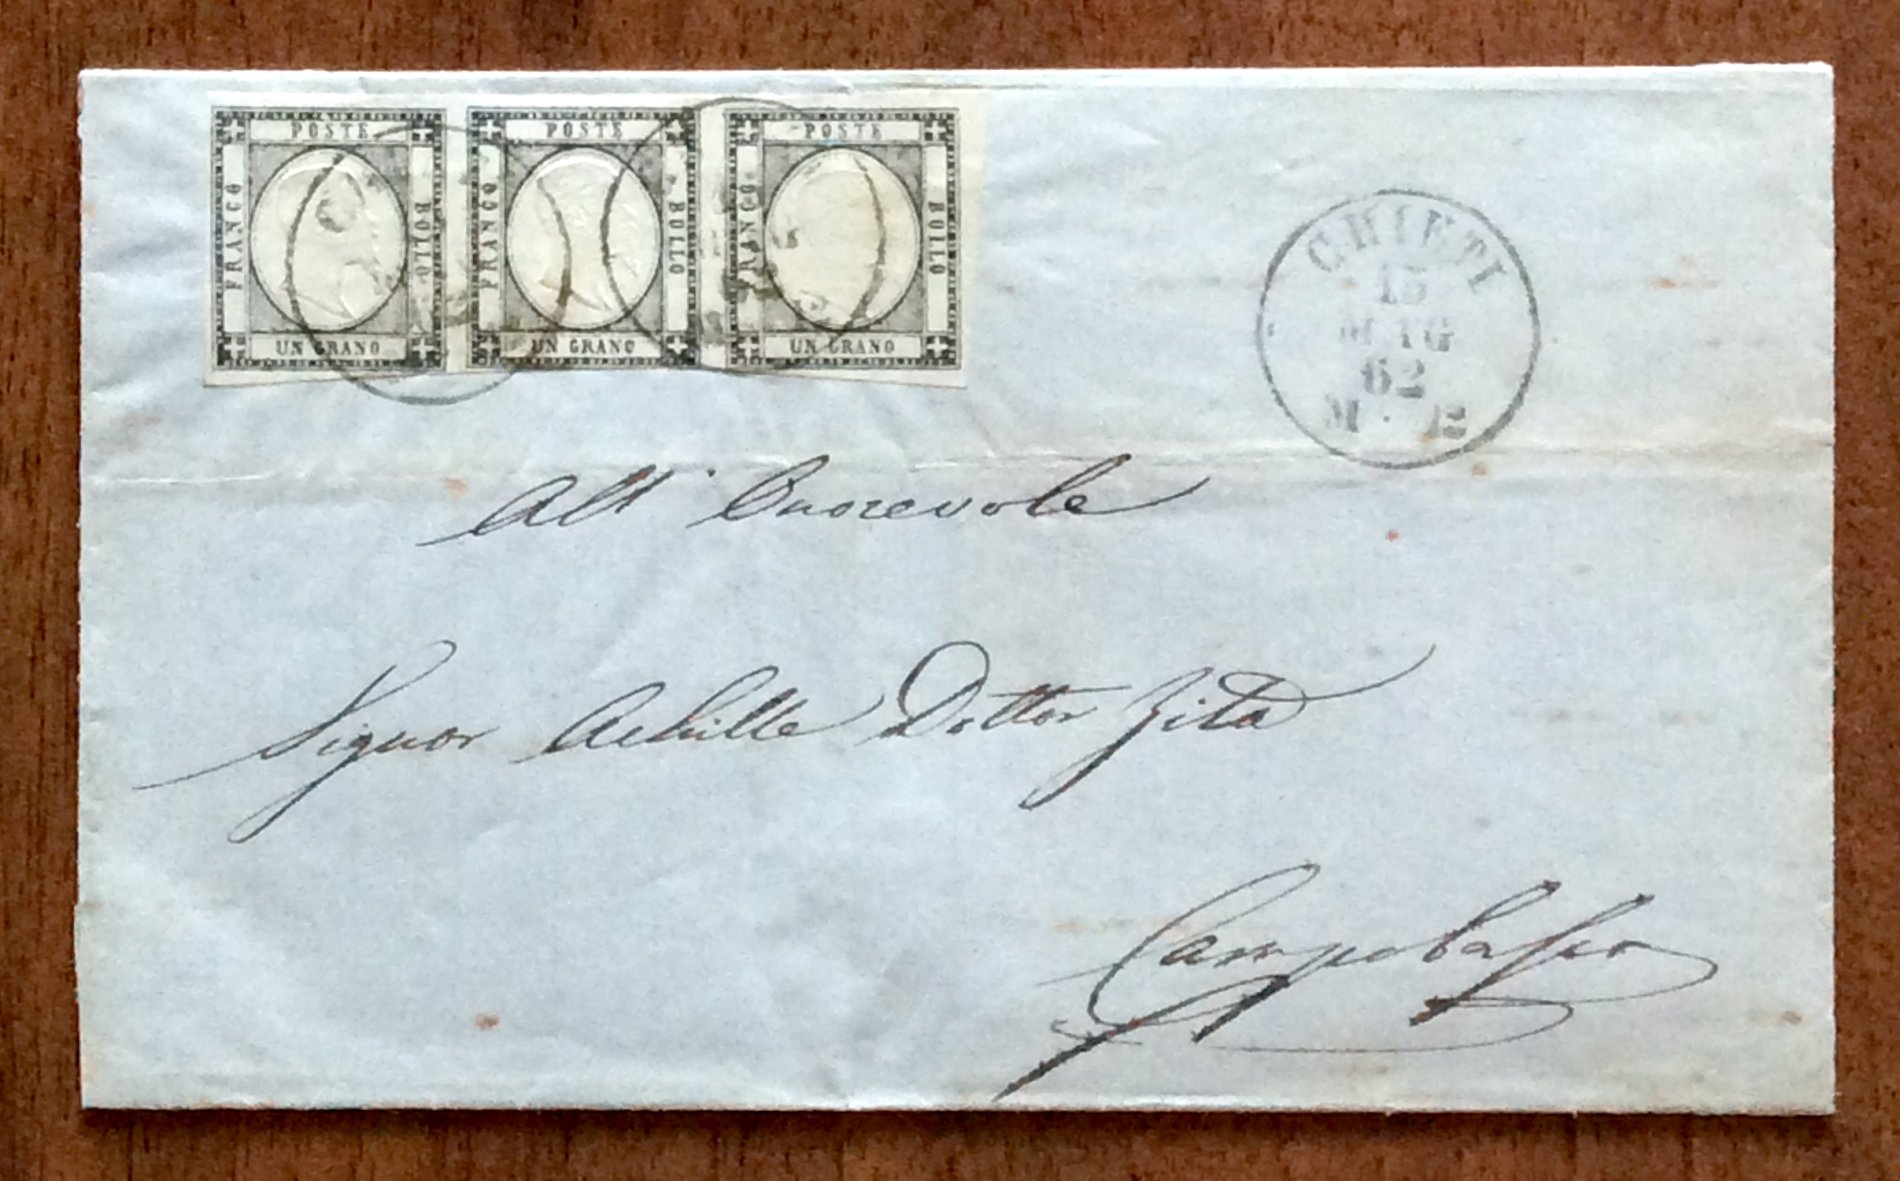 POSTE
FRANCO
BOLLO
UN GRANO
POSTE
FRANCO
BOLLO
UN GRANO
POSTE
FRANCO
BOLLO
UN GRANO
CHIETI
15
MAG
62
M 12
All' Onorevole
Signor Achille Dottor Zita
Campobasso